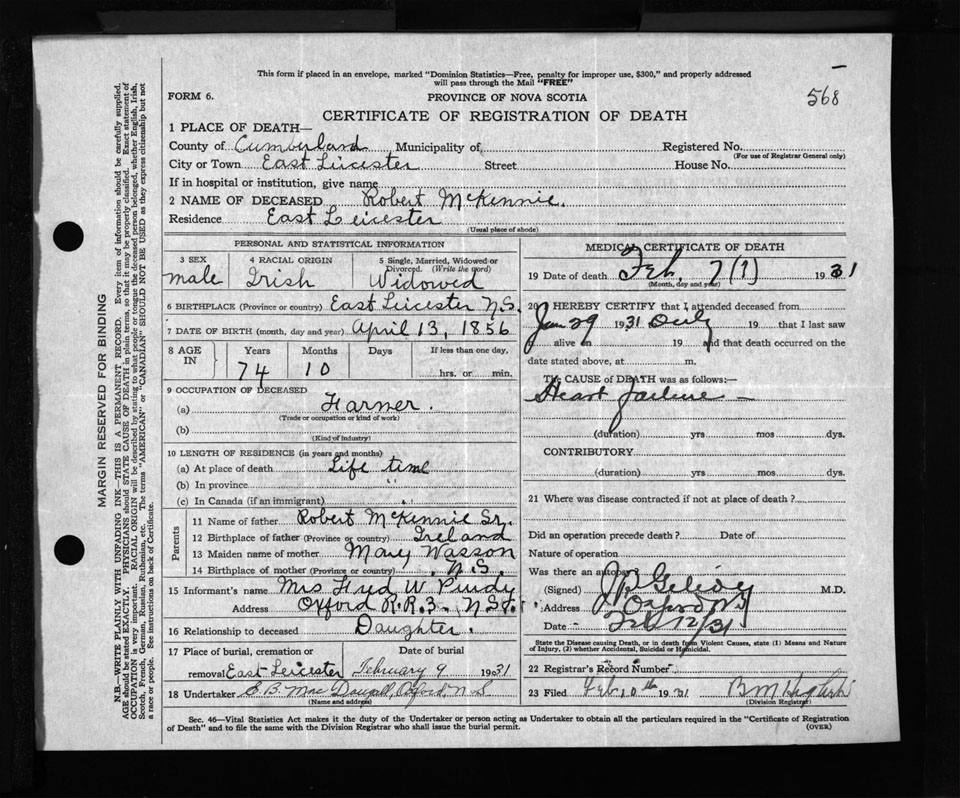 This form if placed in an envelope, marked "Dominion Statistics—Free, penalty for improper use, $300," and properly addressed
will pass through the Mail "FREE"
568
FORM 6.
PROVINCE OF NOVA SCOTIA
CERTIFICATE OF REGISTRATION OF DEATH
1 PLACE OF DEATH—
County of Cumberland Municipality of Registered No.
(For use of Registrar General only)
City or Town East Leicester Street House No.
If in hospital or institution, give name
2 NAME OF DECEASED Robert McKennie.
Residence East Leicester
(Usual place of abode)
PERSONAL AND STATISTICAL INFORMATION
3 SEX 4 RACIAL ORIGIN 5 Single, Married, Widowed or
Divorced. (Write the word)
male Irish Widowed
6 BIRTHPLACE (Province or country) East Leicester N.S.
7 DATE OF BIRTH (month, day and year) April 13, 1856
8 AGE IN Years Months Days If less than one day,
74 10 hrs. or min.
9 OCCUPATION OF DECEASED
(a) Farmer.
(Trade or occupation or kind of work)
(b)
(Kind of industry)
10 LENGTH OF RESIDENCE (in years and months)
(a) At place of death Life time
(b) In province "
(c) In Canada (if an immigrant) "
Parents
11 Name of father Robert McKennie Sr.
12 Birthplace of father (Province or country) Ireland
13 Maiden name of mother Mary Wasson
14 Birthplace of mother (Province or country) N.S.
15 Informant's name Mrs Fred W Purdy
Address Oxford R.R.3. N.S.
16 Relationship to deceased Daughter.
17 Place of burial, cremation or Date of burial
removal East Leicester February 9 1931
18 Undertaker MacDougall, Oxford, N.S
(Name and address)
MEDICAL CERTIFICATE OF DEATH
19 Date of death Feb. 7 (?) 1931
(Month, day and year)
20 I HEREBY CERTIFY that I attended deceased from
Jan 29 1931 Only 19 that I last saw
alive on 19 and that death occurred on the
date stated above, at m.
The CAUSE of DEATH was as follows:—
Heart failure —
(duration) yrs mos dys.
CONTRIBUTORY
(duration) yrs mos dys.
21 Where was disease contracted if not at place of death?
Did an operation precede death? Date of
Nature of operation
Was there an autopsy
(Signed) M.D.
Address Oxford NS
Date Feb 12/31
State the Disease causing Death, or in death from Violent Causes, state (1) Means and Nature
of Injury, (2) whether Accidental, Suicidal or Homicidal.
22 Registrar's Record Number
23 Filed Feb 10th 1931
(Division Registrar)
Sec. 46—Vital Statistics Act makes it the duty of the Undertaker or person acting as Undertaker to obtain all the particulars required in the "Certificate of Registration
of Death" and to file the same with the Division Registrar who shall issue the burial permit.
(OVER)
MARGIN RESERVED FOR BINDING
N.B.—WRITE PLAINLY WITH UNFADING INK—THIS IS A PERMANENT RECORD. Every item of information should be carefully supplied.
AGE should be stated EXACTLY. PHYSICIANS should STATE CAUSE OF DEATH in plain terms, so that it may be properly classified. Exact statement of
OCCUPATION is very important. RACIAL ORIGIN will be described by stating to what people or tongue the deceased person belonged, whether English, Irish,
Scotch, French, German, Russian, Ruthenian, etc. The terms "AMERICAN" or "CANADIAN" SHOULD NOT BE USED as they express citizenship but not
a race or people. See instructions on back of Certificate.